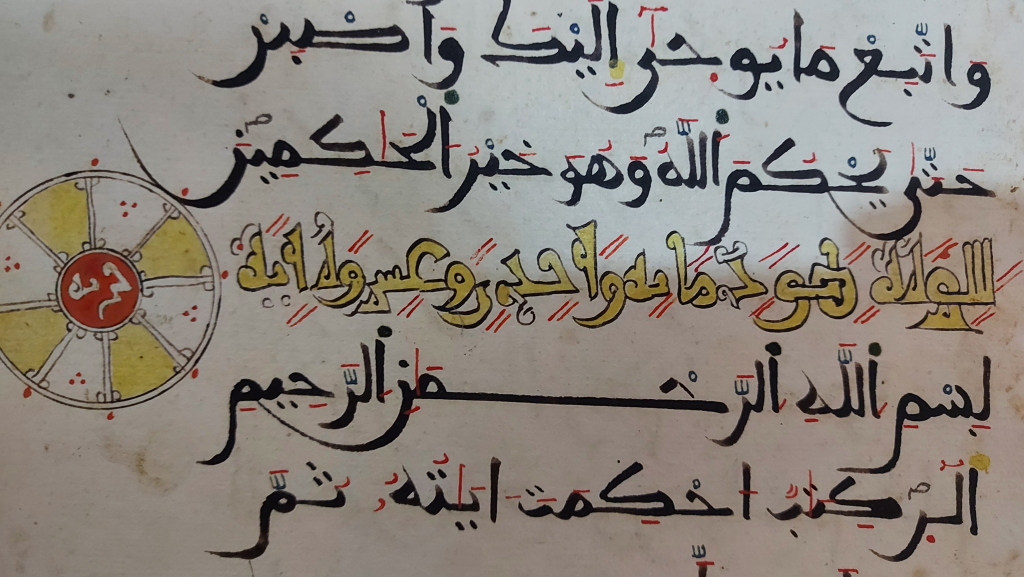 وَاتَّبِعْ مَا يُوحَىٰ إِلَيْكَ وَاصْبِرْ
حَتَّىٰ يَحْكُمَ اللَّهُ وَهُوَ خَيْرُ الْحَٰكِمِينَ
سورة هود مايه وعشرون اية
بِسْمِ اللَّهِ الرَّحْمَٰنِ الرَّحِيمِ
الٓر كِتَٰبٌ احْكِمَتْ ايَٰتُهُ ثُمَّ